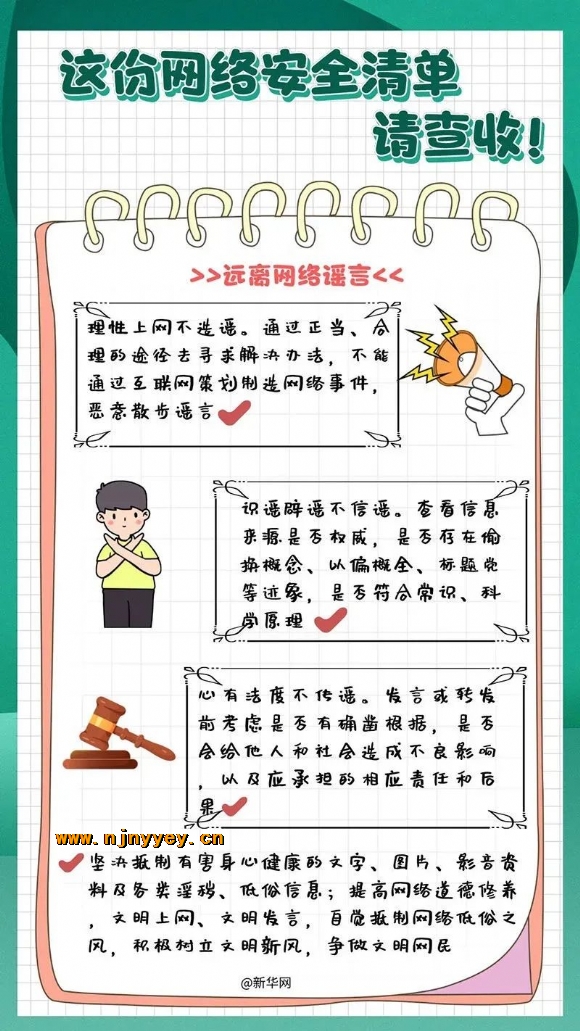 这份网络安全清单
请查收!
>>远离网络谣言<<
理性上网不造谣。通过正当、合
理的途径去寻求解决办法，不能
通过互联网策划制造网络事件，
恶意散步谣言
识谣辟谣不信谣。查看信息
来源是否权威，是否存在偷
换概念、以偏概全、标题党
等迹象，是否符合常识、科
学原理
心有法度不传谣。发言或转发
前考虑是否有确凿根据，是否
会给他人和社会造成不良影响
，以及应承担的相应责任和后
果
www.njnyyey.cn
坚决抵制有害身心健康的文字、图片、影音资
料及各类淫秽、低俗信息；提高网络道德修养
，文明上网、文明发言，自觉抵制网络低俗之
风，积极树立文明新风，争做文明网民
@新华网